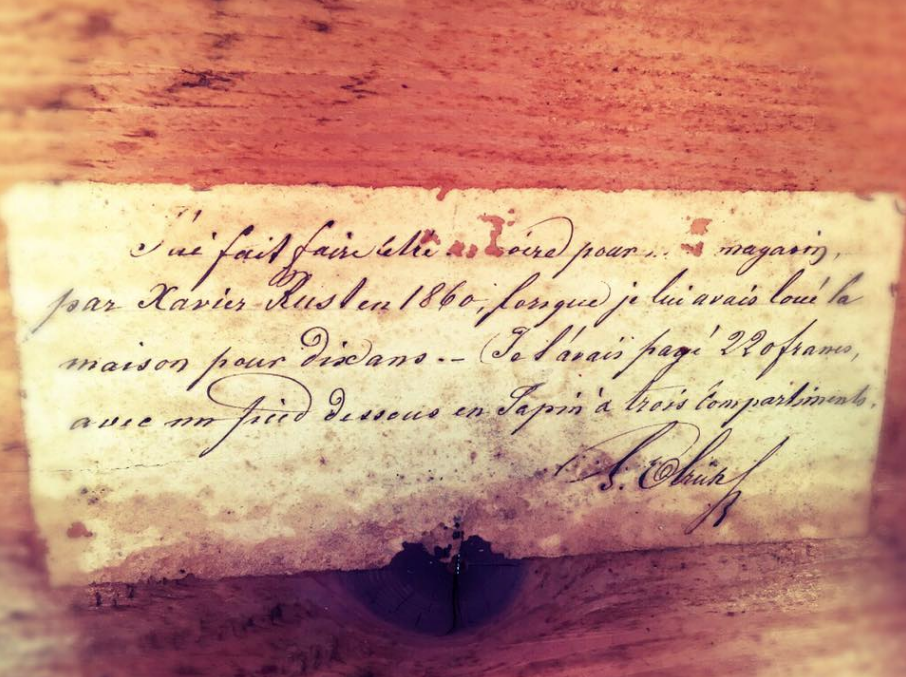 J'ai fait faire cette pour magasin,
par Xavier Rust en 1860, lorsque je lui avais loué la
maison pour dix ans -- (Je l'avais payé 220 francs,
avec un pied dessous en Sapin à trois Compartiments.